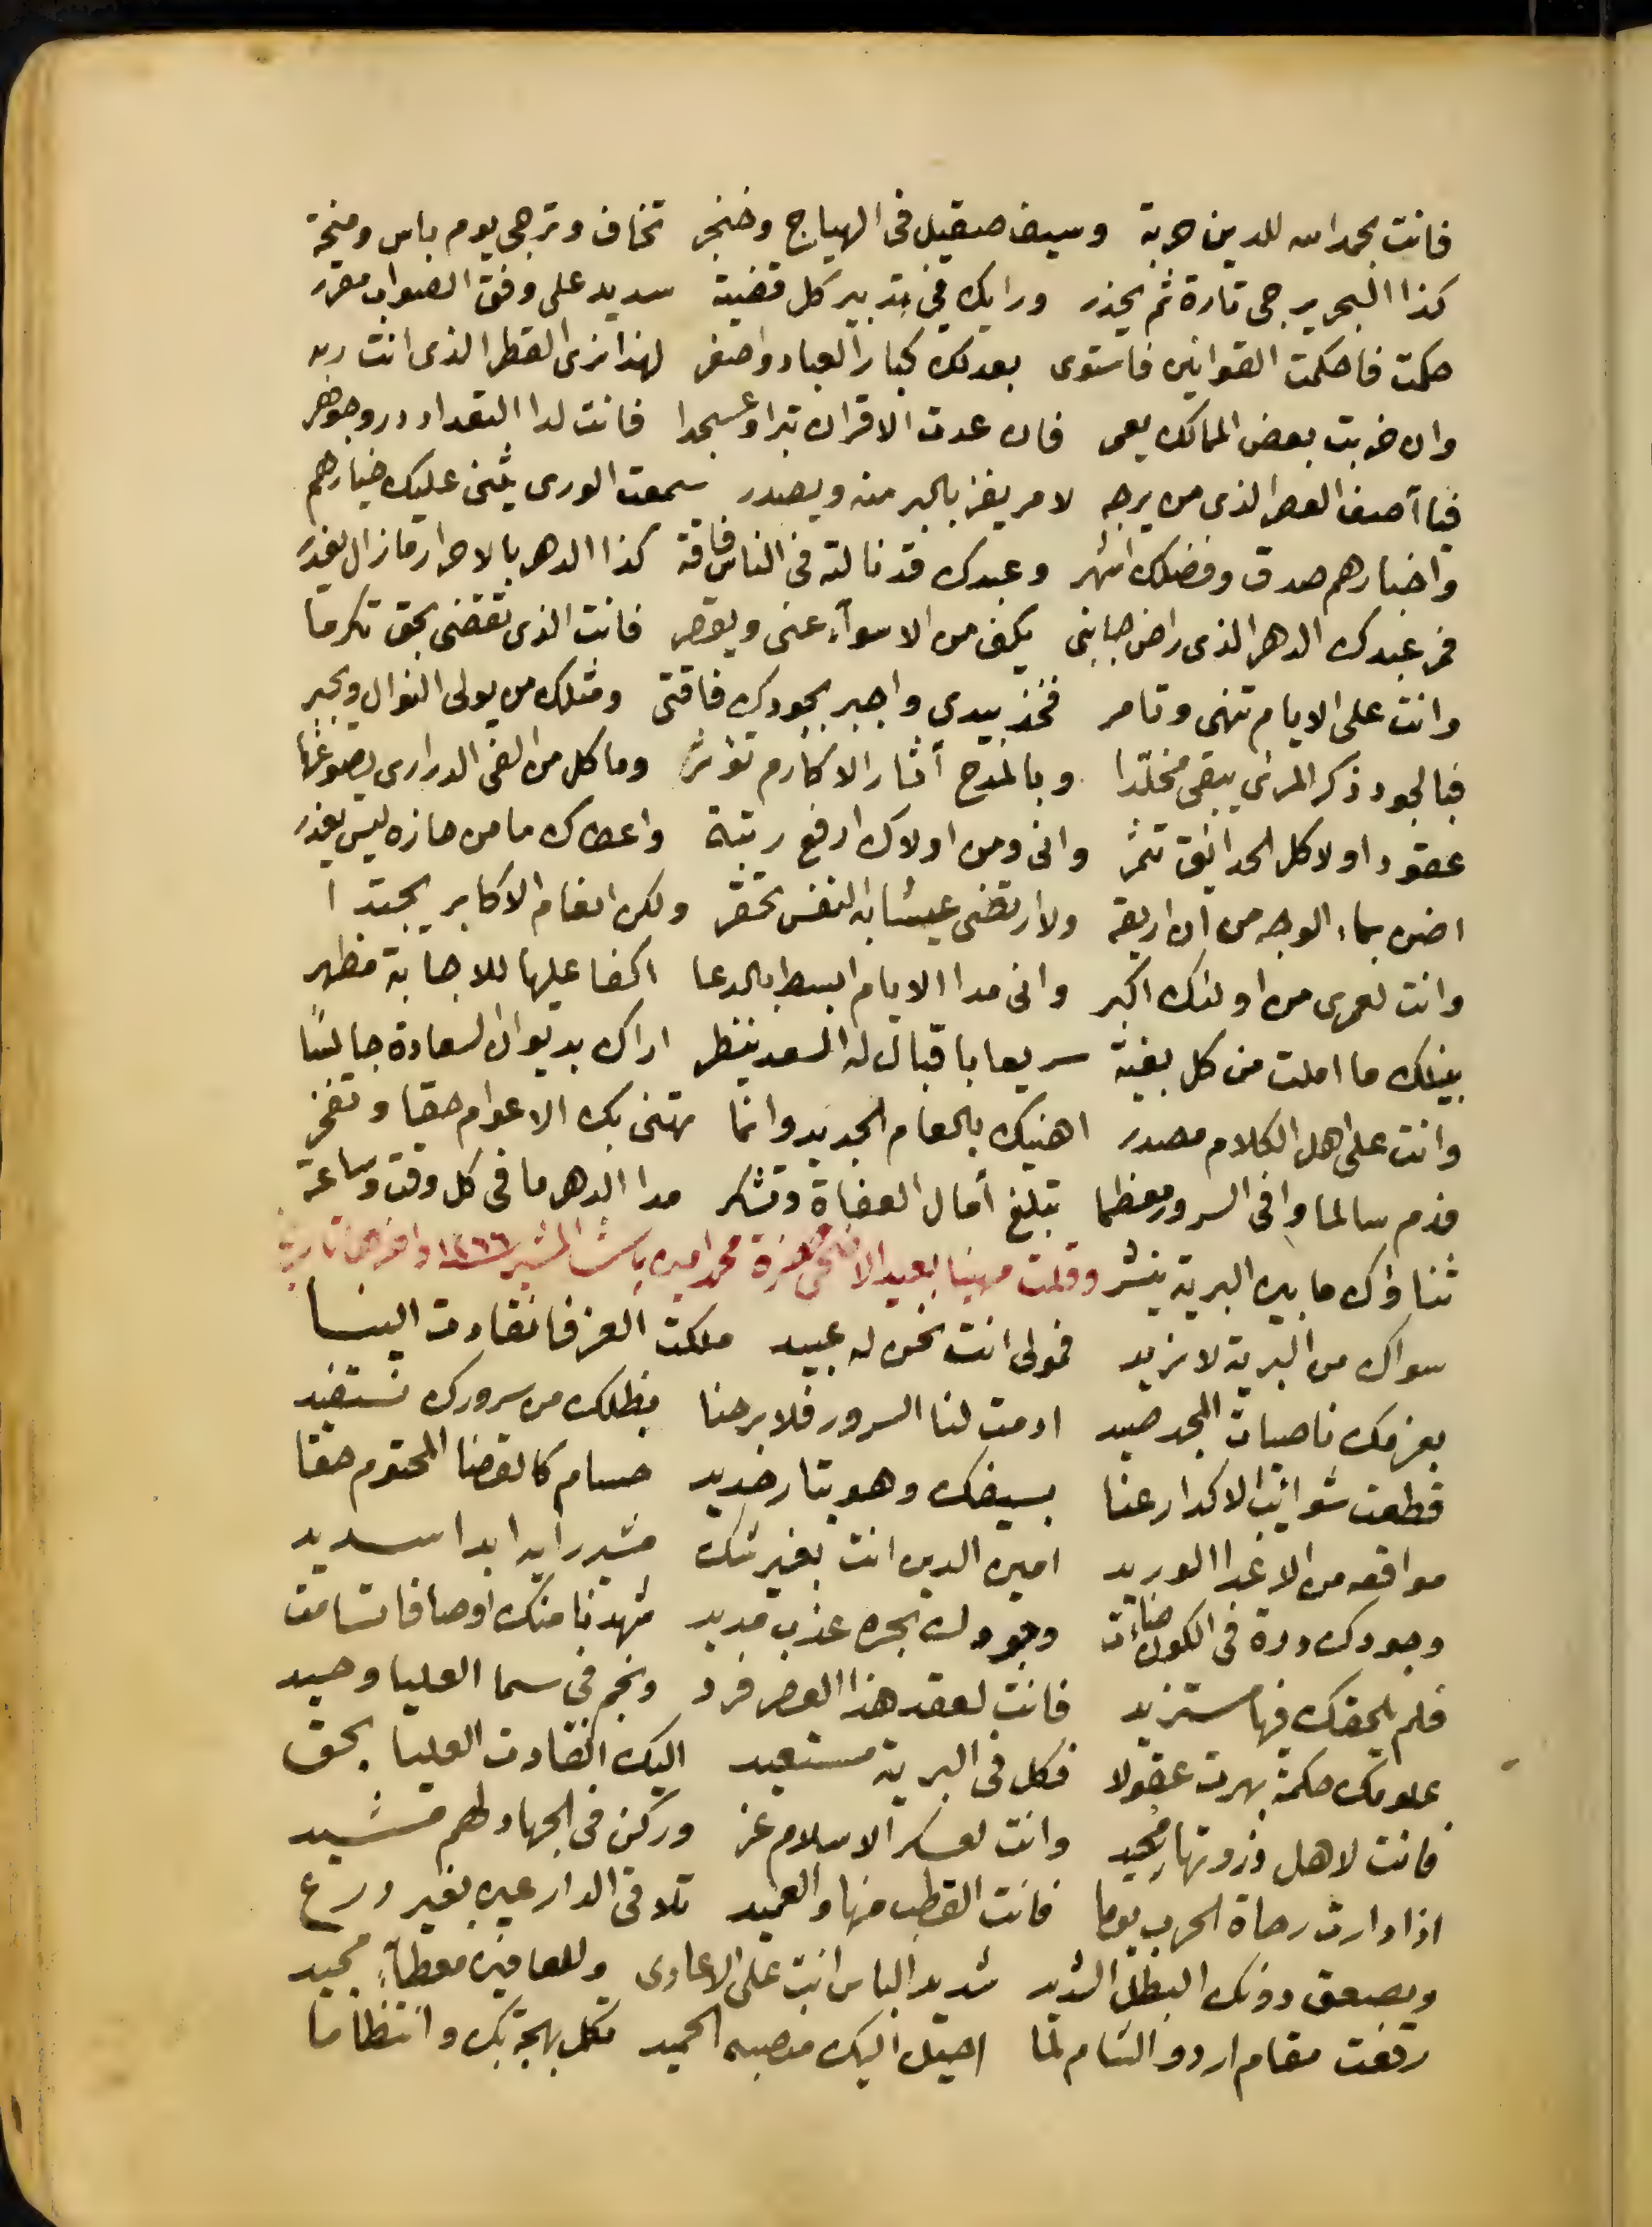 فانت بحمد الله للدين حربة وسيف صقيل فى الهياج وخنجر تخاف وترجى يوم باس ومنحة
كذا البحر يرجى تارة ثم يحذر ورايك فى تدبير كل قضية سديد على وفق الصواب مقرر
حكمت فاحكمت القوانين فاستوى بعدلك كبار العباد واصغر لهذا نرى القطر الذى انت ربه
وان خربت بعض الممالك يعمر فان عدت الاقران تبرا وعسجدا فانت لدا التعداد در وجوهر
فيا آصف العصر الذى من يرجه لامر يفز بالبر منه ويصدر سمعت الورى يثنى عليك خيارهم
واخبارهم صدق وفضلك اشهر وعبدك قد نالته فى الناس فاقة كذا الدهر بالاحرار ما زال يغدر
فمر عبدك الدهر الذى راض جانبى يكف من الاسوآء عنى ويقصر فانت الذى تقضى بحق تكرما
وانت على الايام تنهى وتامر فخذ بيدي واجبر بجودك فاقتى ومثلك من يولى النوال ويجبر
فبالجود ذكر المرئ يبقى مخلّدا وبالمدح أثار الاكارم تؤثر وما كل من الفى الدرارى يصوغها
عقود اولا كل الحدائق تثمر وانى ومن اولاك ارفع رتبة واعطاك ما من حازه ليس يغدر
اضن بماء الوجه من ان اريقه ولا ارتضى عيشا به النفس تحقر ولكن انعام الاكابر يجتدا
وانت لعمرى من اولئك اكبر وانى مدا الايام ابسط بالدعا اكفا عليها للاجابة مظهر
ينيلك ما املت من كل بغية سريعا باقبال له السعد ينظر اراك بديوان السعادة جالسًا
وانت على اهل الكلام مصدر اهنيك بالعام الجديد وانما تهنى بك الاعوام حقا وتفخر
فدم سالما وافى السرور معظما تبلغ أمال العفاة وتشكر مدا الدهر ما فى كل وقت وساعة
ثناؤك ما بين البرية ينشر وقلت مهنيا بعيد الاضحى حضرة محمد امين باشا المشير ١٢٦٦ واخرها تاريخ
سواك من البرية لا نريد فمولى انت نحن له عبيد ملكت العز فانقادت الينا
بعزمك ناصيات المجد صيد ادمت لنا السرور فلا برحنا بظلك من سرورك نستفيد
قطعت شوائب الاكدار عنا بسيفك وهو بتار حديد حسام كالقضا المحتوم حقا
مواقعه من الاعدا الوريد امين الدين انت بغير شك مشير رايه ابدا سديد
وجودك درة فى الكون ضاءت وجودك بحره عذب مديد شهدنا منك اوصافا تسامت
فلم يلحقك فيها مستزيد فانت لعقد هذا العصر فرد ونجم فى سما العليا وحيد
علومك حكمة بهرت عقولا فكل فى البرية مستعيد اليك انقادت العليا بحق
فانت لاهل ذروتها مجيد وانت لعسكر الاسلام عز وركن فى الجهاد لهم مشيد
اذا دارت رحاة الحرب يوما فانت القطب منها والعميد تلاقى الدارعين بغير درع
ويصعق دونك البطل الشديد شديد الباس انت على الاعادى وللعافين معطآء مجيد
رفعت مقام اردو الشام لما احيل اليك منصبه الحميد تكمل بهجة بك وانتظاما